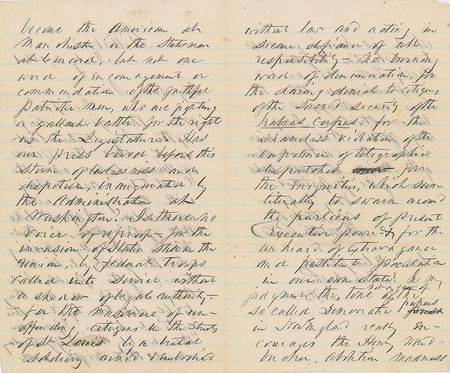 become the American at
Manchester or the Statesman
at Concord, but not one
word of encouragement or
commendation of the faithful
Patriotic men, who are fighting
a gallant battle for the right
in the Legislature. Has
our press bowed before this
storm of lawlessness and
despotism, inaugurated by
the Administration at
Washington? Is there no
voice of reproof - for the
invasion of States
Union, by federal troops
called into service without
a shadow of legal authority -
for the massacre of un-
offending citizens in the streets
of St Louis by a brutal
soldiery armed & embodied
without law and acting in
defiance of all
responsibility - No burning
word of denunciation, for
the daring denial to citizens
of the sacred security of the
habeas corpus, for the
shameless violation of the
of telegraphic
despatches for
the
literally to swarm around
the purlieus of present
Executive power & for the
unheard of extravagance
and pestilent
in our own State. In my
judgment the tone of the majority of
so called Democratic papers
in N. England really en-
courages the Henry Ward
Beecher, abolition madness